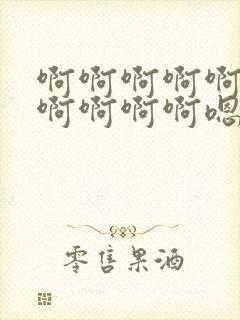 啊啊啊啊啊
啊啊啊啊嗯
零售果酒